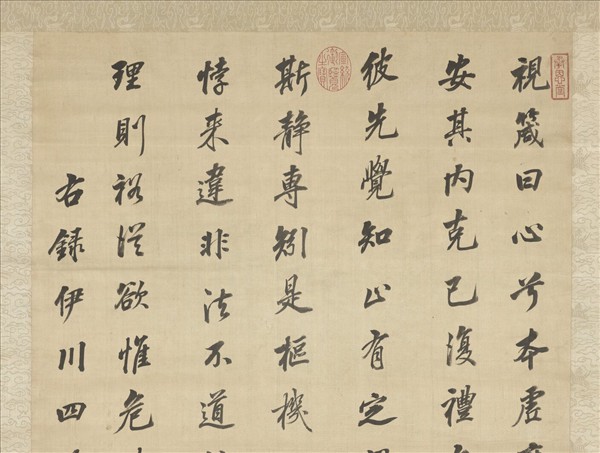 視箴曰心兮本虚
安其内克己復禮
彼先覺知止有定
斯静専矧是樞機
悖来違非法不道
理則裕從欲惟危
右録伊川四